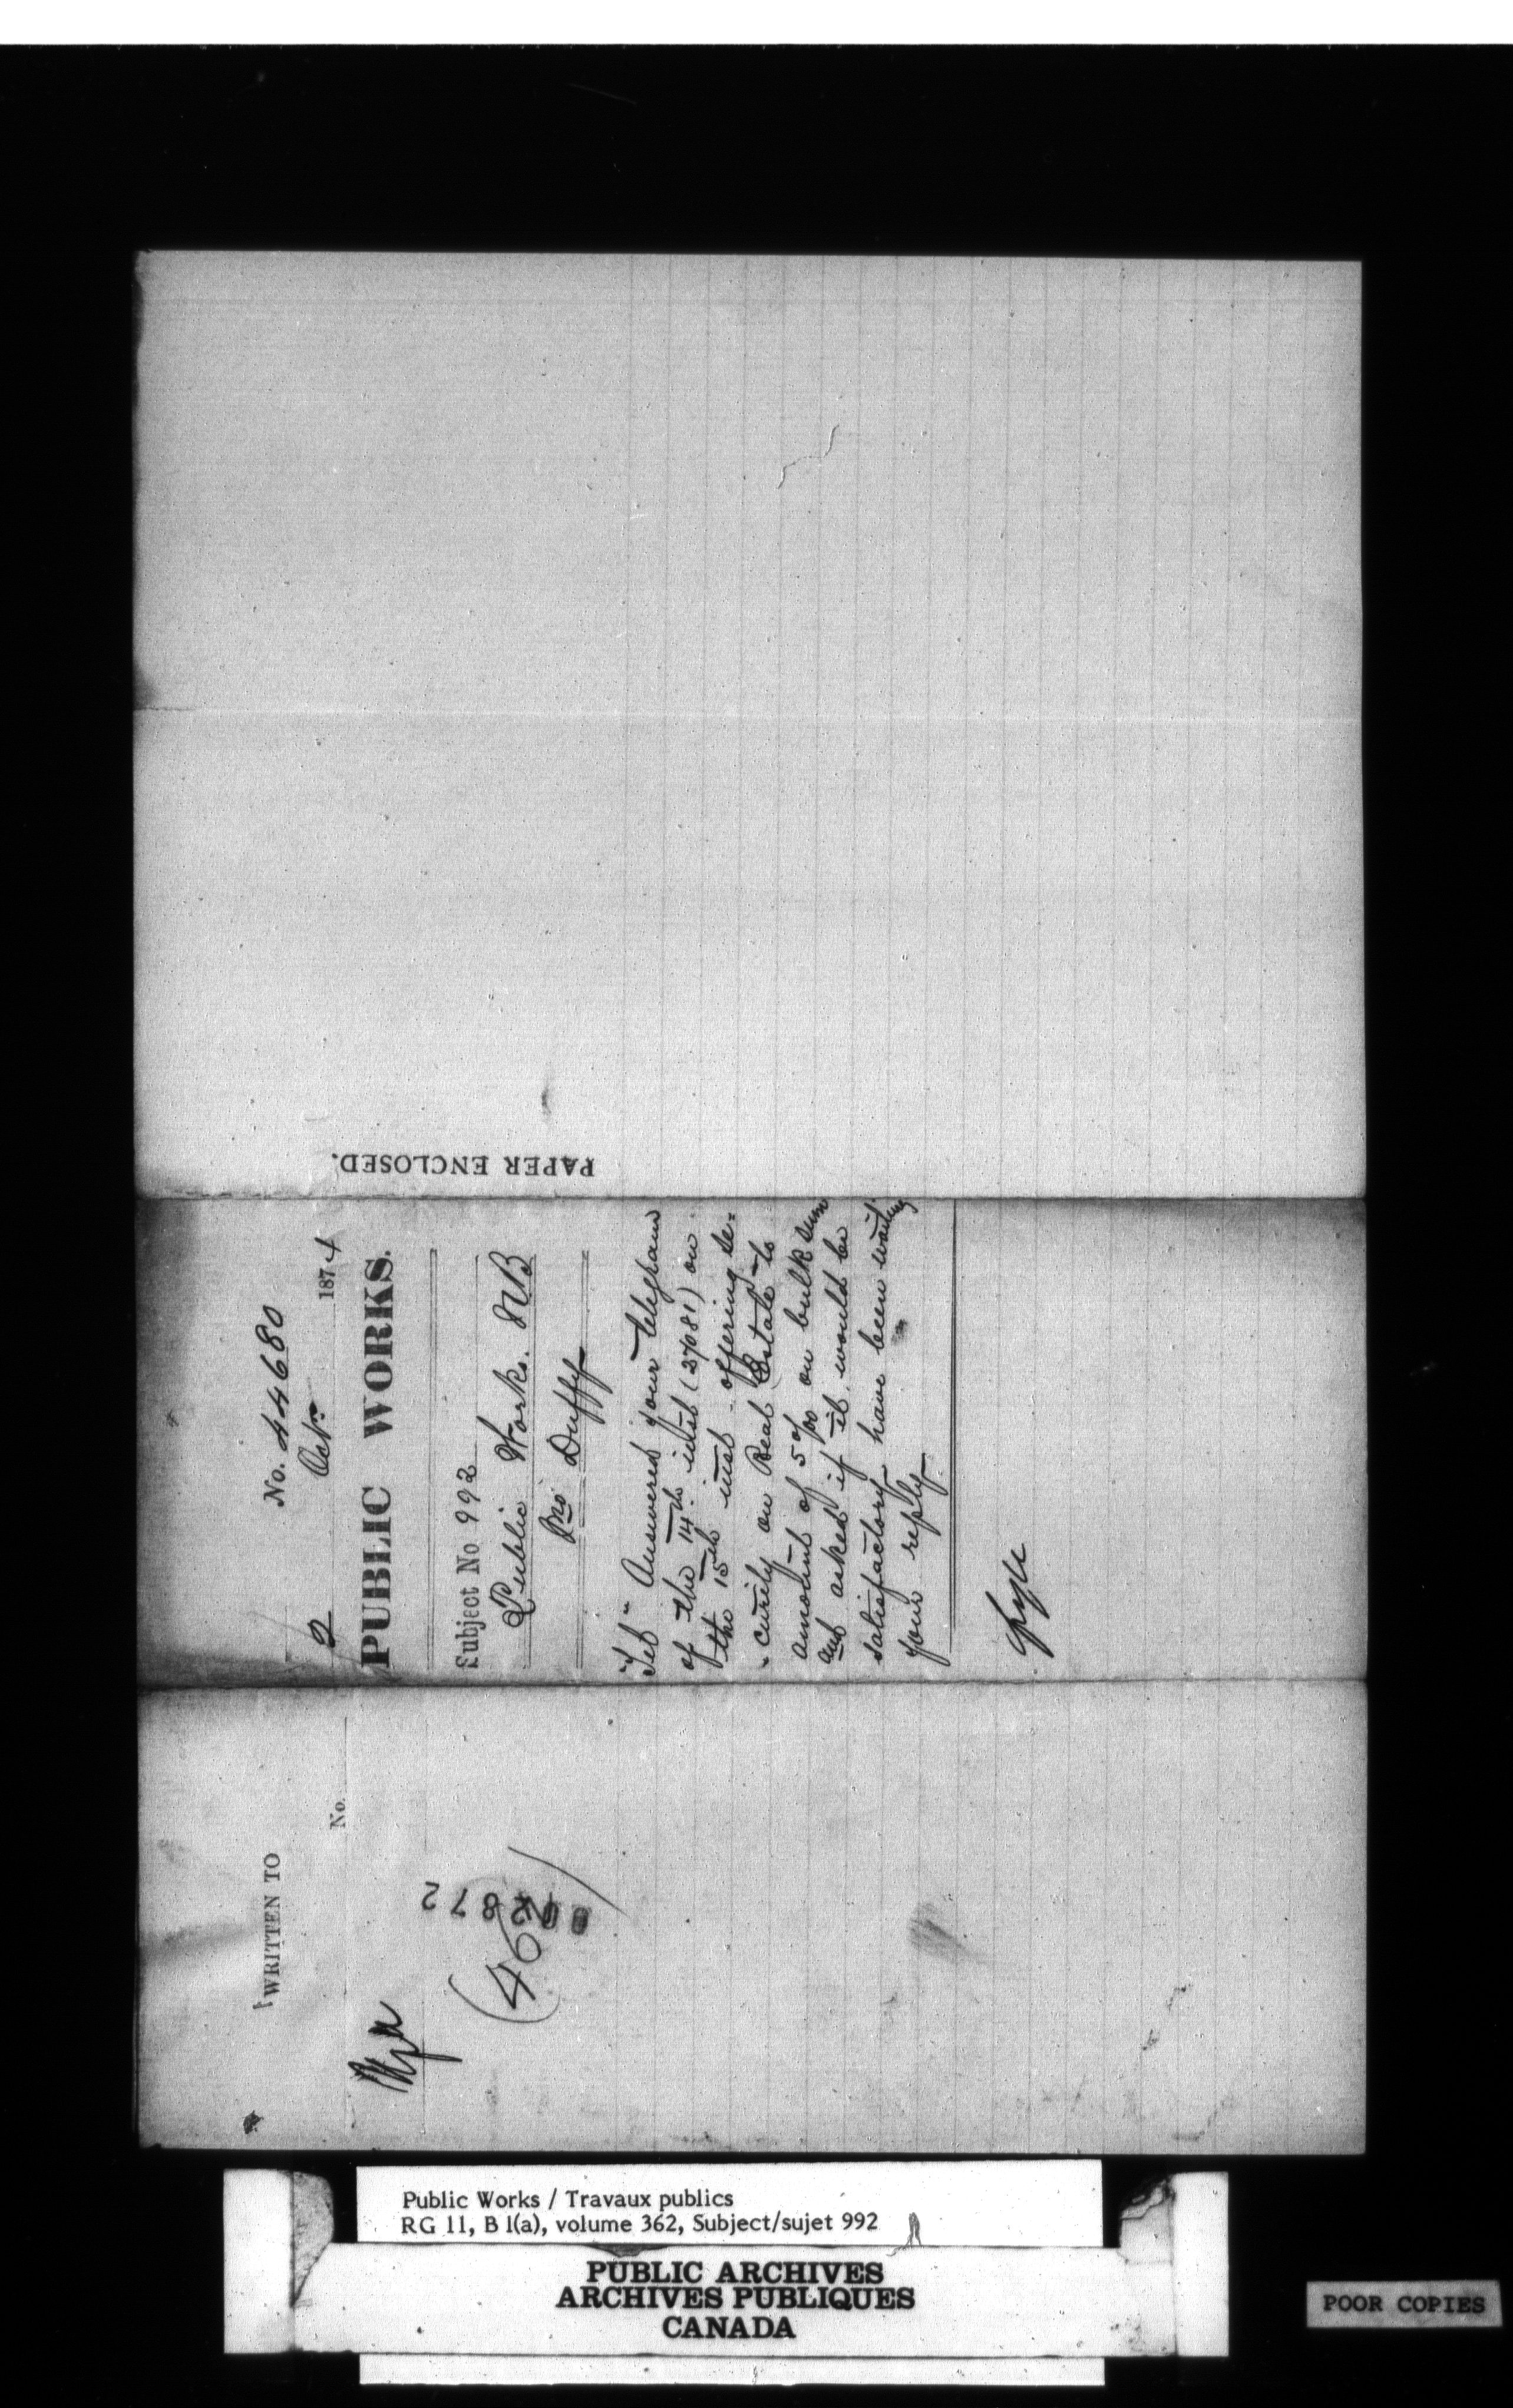 No. 44680
2 Oct. 1874
PUBLIC WORKS.
Subject No 992
Public Works. NB
Duffy
"Tel" Answered your telegram
of the 14th inst (37081) on
the 15th inst - offering se=
-curity on Real Estate to
amount of 5 0/00 on bulk sum
and asked if it would be
satisfactory have been waiting
your reply
PAPER ENCLOSED.
WRITTEN TO
No.
2872
(46
Public Works / Travaux publics
RG 11, B 1(a), volume 362, Subject/sujet 992
PUBLIC ARCHIVES
ARCHIVES PUBLIQUES
CANADA
POOR COPIES